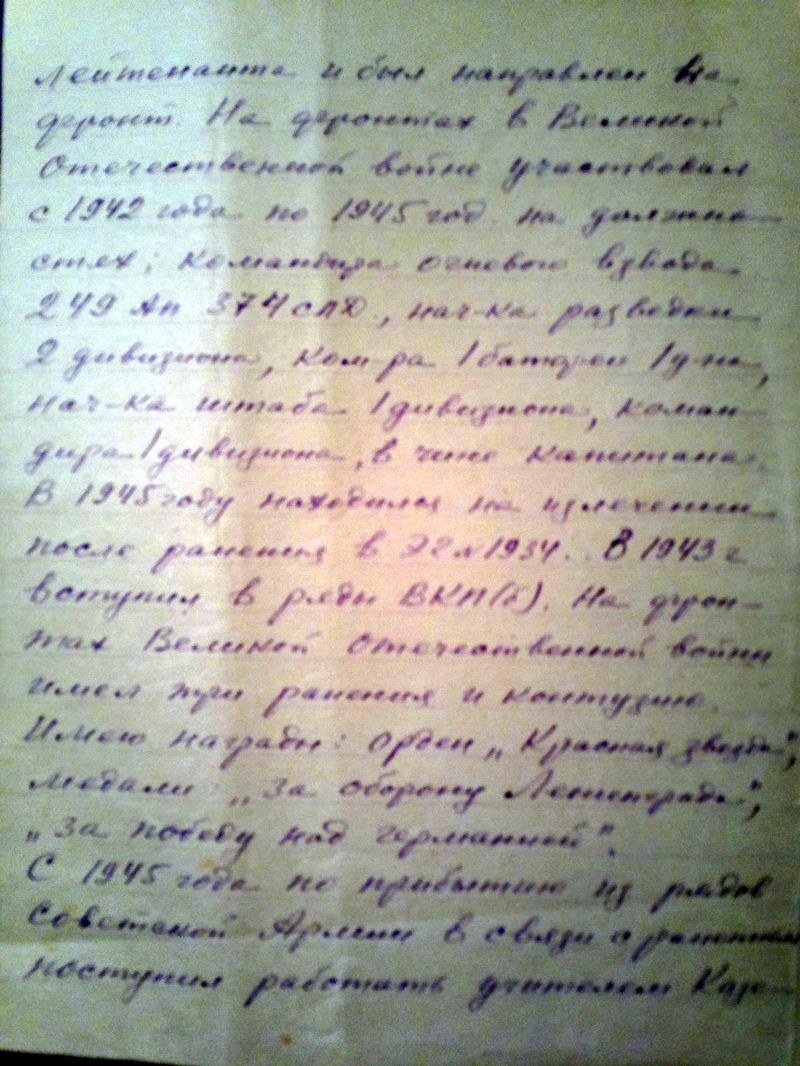 лейтенанта и был направлен на
фронт. На фронтах в Великой
Отечественной войне участвовал
с 1942 года по 1945 год на должно-
стях; командира огневого взвода
249 Ап 374 СПД, нач-ка разведки
2 дивизиона, ком-ра 1 батареи 1 д-на,
нач-ка штаба 1 дивизиона, коман-
дира 1 дивизиона, в чине капитана.
В 1945 году находился на излечении
после ранения в ЭГ № 1934. В 1943 г
вступил в ряды ВКП(б). На фрон-
тах Великой Отечественной войны
имел три ранения и контузию.
Имею награды: Орден „Красная звезда",
медали: „За оборону Ленинграда",
„За победу над Германией".
С 1945 года по прибытию из рядов
Советской Армии в связи с ранением
поступил работать учителем Каза-